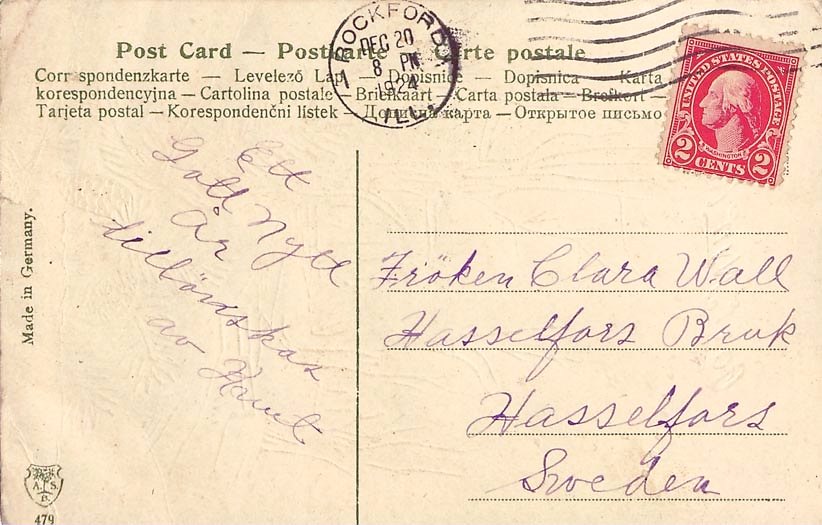 Post Card — Postkarte — Carte postale
Correspondenzkarte — Levelező Lap — Dopisnice — Dopisnica — Karta
korespondencyjna — Cartolina postale — Briefkaart — Carta postala — Brefkort —
Tarjeta postal — Korespondenční lístek — Дописна карта — Открытое письмо
ROCKFORD
DEC 20
8 PM
1924
ILL.
UNITED STATES POSTAGE
WASHINGTON
2 CENTS 2
Ett
Gott Nytt
År
tillönskas
av
Made in Germany.
Fröken Clara Wall
Hasselfors Bruk
Hasselfors
Sweden
A. S.
B.
479